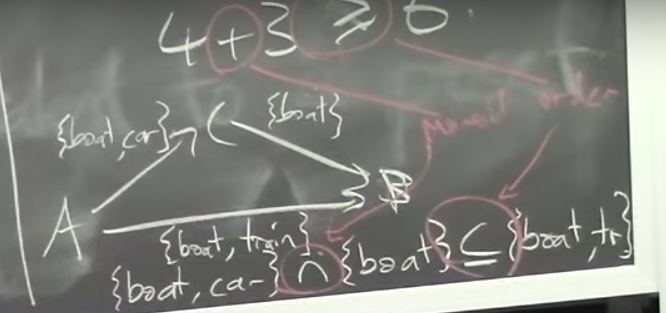 4 + 3 ≥ 6.
monoid order
{boat, car} C {boat}
A B
{boat, train}
{boat, car} ∩ {boat} ⊆ {boat, tr}